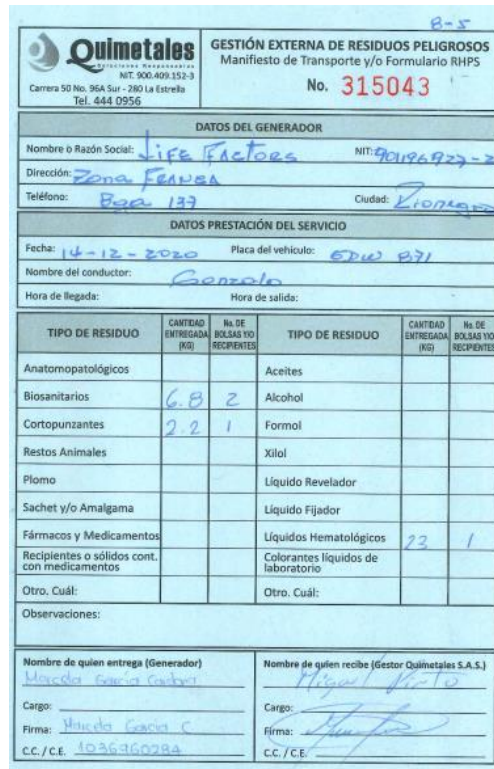 8-5
Quimetales
Soluciones Responsables
NIT. 900.409.152-3
Carrera 50 No. 96A Sur - 280 La Estrella
Tel. 444 0956
GESTIÓN EXTERNA DE RESIDUOS PELIGROSOS
Manifiesto de Transporte y/o Formulario RHPS
No. 315043
DATOS DEL GENERADOR
Nombre o Razón Social: Life Factors NIT: 901196927-2
Dirección: Zona Franca
Teléfono: Bga 137 Ciudad: Rionegro
DATOS PRESTACIÓN DEL SERVICIO
Fecha: 14-12-2020 Placa del vehículo: EDW 871
Nombre del conductor: Gonzalo
Hora de llegada: Hora de salida:
TIPO DE RESIDUO CANTIDAD ENTREGADA (KG) No. DE BOLSAS Y/O RECIPIENTES TIPO DE RESIDUO CANTIDAD ENTREGADA (KG) No. DE BOLSAS Y/O RECIPIENTES
Anatomopatológicos Aceites
Biosanitarios 6.8 2 Alcohol
Cortopunzantes 2.2 1 Formol
Restos Animales Xilol
Plomo Líquido Revelador
Sachet y/o Amalgama Líquido Fijador
Fármacos y Medicamentos Líquidos Hematológicos 23 1
Recipientes o sólidos cont. con medicamentos Colorantes líquidos de laboratorio
Otro. Cuál: Otro. Cuál:
Observaciones:
Nombre de quien entrega (Generador) Nombre de quien recibe (Gestor Quimetales S.A.S.)
Marcela Garcia Miguel
Cargo: Cargo:
Firma: Marcela Garcia C Firma:
C.C. / C.E. 1036960284 C.C. / C.E.